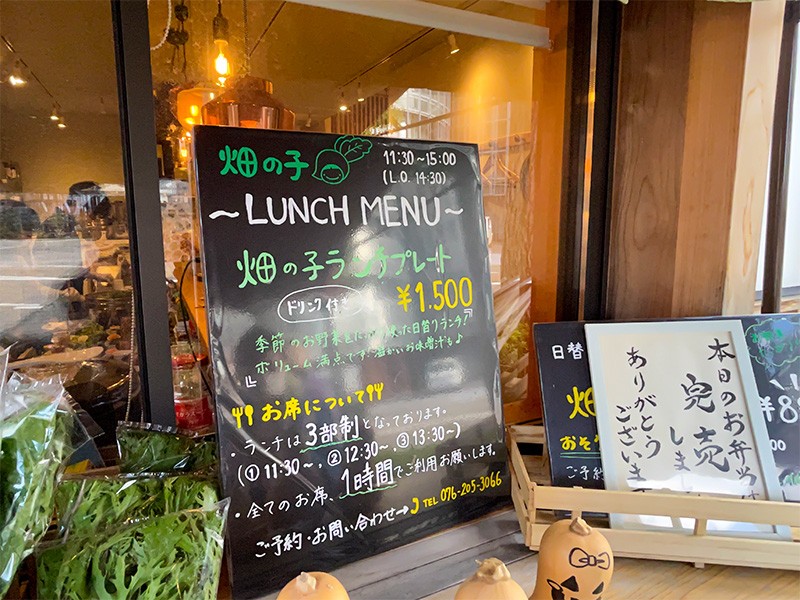 畑の子
11:30~15:00
(L.O. 14:30)
~LUNCH MENU~
畑の子ランチプレート
ドリンク付き
¥1,500
季節のお野菜を使った日替りランチ!
ボリューム満点です!温かいお味噌汁も♪
お席について
・ランチは3部制となっております。
(①11:30~, ②12:30~, ③13:30~)
・全てのお席、1時間でご利用お願いします。
ご予約・お問い合わせ→TEL 076-205-3066
日替
畑
おそ
ご予約
本日のお弁当
完売しま
ありがとう
ございま
¥8